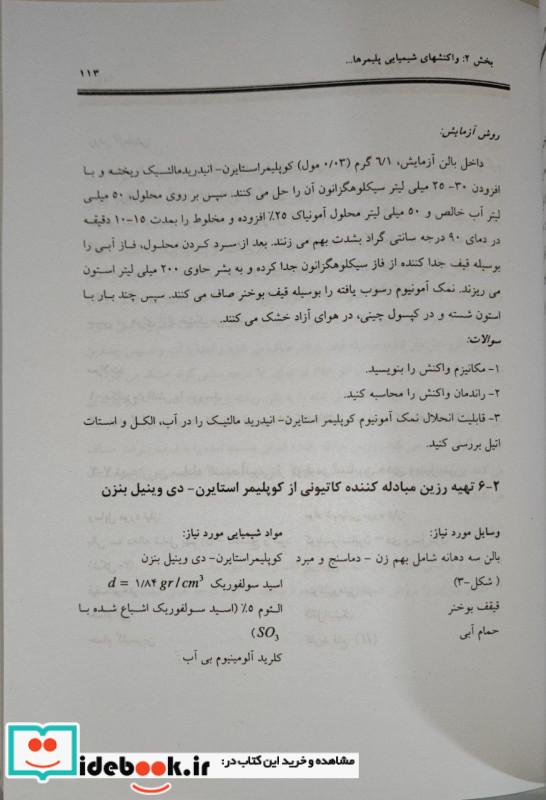 بخش ۲: واکنشهای شیمیایی پلیمرها...
۱۱۳
روش آزمایش:
داخل بالن آزمایش، ۶/۱ گرم (۰/۰۳ مول) کوپلیمراستایرن- انیدریدمالئیک ریخته و با
افزودن ۳۰- ۲۵ میلی لیتر سیکلوهگزانون آن را حل می کنند. سپس بر روی محلول، ۵۰ میلی
لیتر آب خالص و ۵۰ میلی لیتر محلول آمونیاک ۲۵٪ افزوده و مخلوط را بمدت ۱۵-۱۰ دقیقه
در دمای ۹۰ درجه سانتی گراد بشدت بهم می زنند. بعد از سرد کردن محلول، فاز آبی را
بوسیله قیف جدا کننده از فاز سیکلوهگزانون جدا کرده و به بشر حاوی ۲۰۰ میلی لیتر استون
می ریزند. نمک آمونیوم رسوب یافته را بوسیله قیف بوخنر صاف می کنند. سپس چند بار با
استون شسته و در کپسول چینی، در هوای آزاد خشک می کنند.
سوالات:
۱- مکانیزم واکنش را بنویسید.
۲- راندمان واکنش را محاسبه کنید.
۳- قابلیت انحلال نمک آمونیوم کوپلیمر استایرن- انیدرید مالئیک را در آب، الکل و استات
اتیل بررسی کنید.
۶-۲ تهیه رزین مبادله کننده کاتیونی از کوپلیمر استایرن- دی وینیل بنزن
وسایل مورد نیاز:
بالن سه دهانه شامل بهم زن - دماسنج و مبرد
( شکل-۳)
قیقف بوخنر
حمام آبی
مواد شیمیایی مورد نیاز:
کوپلیمراستایرن- دی وینیل بنزن
اسید سولفوریک d = ۱/۸۴ gr/cm³
الئوم ۵٪ (اسید سولفوریک اشباع شده با
SO₃)
کلرید آلومینیوم بی آب
مشاهده و خرید این کتاب در:
idebook.ir